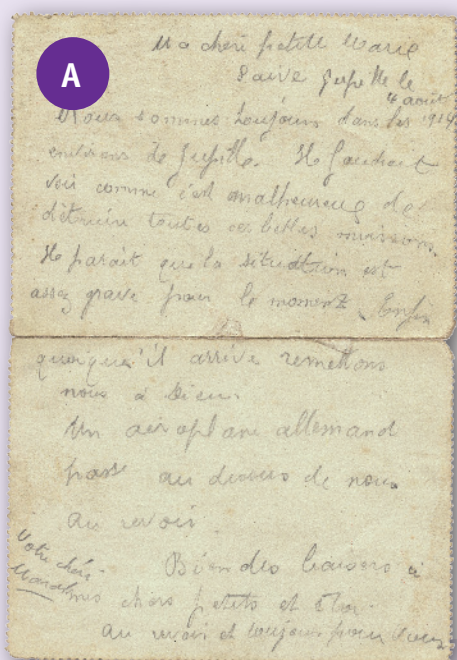 A
Ma chéri petite Marie
Saive Jupille le
4 août
1914
Nous sommes toujours dans les
environs de Jupille. Il faudrait
voir comme c'est malheureux de
détruire toutes ces belles maisons.
Il parait que la situation est
assez grave pour le moment. Enfin
quoiqu'il arrive remettons
nous à Dieu.
Un aéroplane allemand
passe au dessus de nous
au revoir.
Bien des baisers à
mes chers petits et
au revoir et toujours
Votre chér